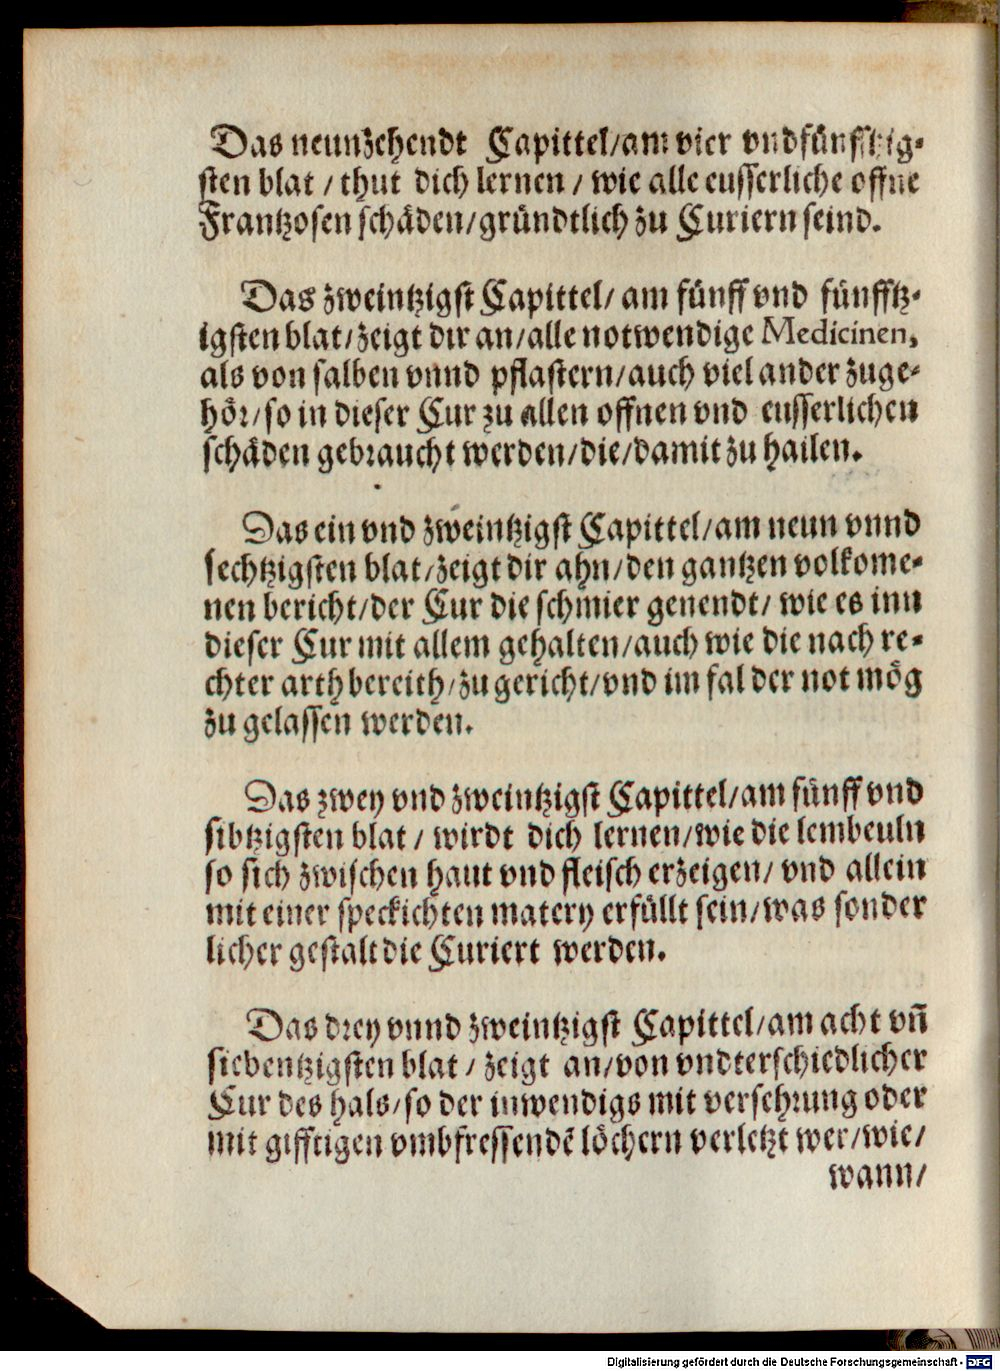 Das neunzehendt Capittel/am vier vndfünfftzig-
sten blat / thut dich lernen / wie alle eusserliche offne
Frantzosen schäden/gründtlich zu Curiern seind.
Das zweintzigst Capittel/ am fünff vnd fünfftz-
igsten blat/zeigt dir an/alle notwendige Medicinen,
als von salben vnnd pflastern/auch viel ander zuge-
hör/so in dieser Cur zu allen offnen vnd eusserlichen
schäden gebraucht werden/die/damit zu hailen.
Das ein vnd zweintzigst Capittel/am neun vnnd
sechtzigsten blat/zeigt dir ahn/den gantzen volkome-
nen bericht/der Cur die schmier genendt/ wie es inn
dieser Cur mit allem gehalten/auch wie die nach re-
chter arth bereith/zu gericht/vnd im fal der not mög
zu gelassen werden.
Das zwey vnd zweintzigst Capittel/am fünff vnd
sibtzigsten blat / wirdt dich lernen/wie die lembeuln
so sich zwischen haut vnd fleisch erzeigen/ vnd allein
mit einer speckichten matery erfüllt sein/was sonder
licher gestalt die Curiert werden.
Das drey vnnd zweintzigst Capittel/am acht vn̄
siebentzigsten blat / zeigt an/von vndterschiedlicher
Cur des hals/so der inwendigs mit versehrung oder
mit gifftigen vmbfressendē löchern verletzt wer/wie/
wann/
Digitalisierung gefördert durch die Deutsche Forschungsgemeinschaft - DFG